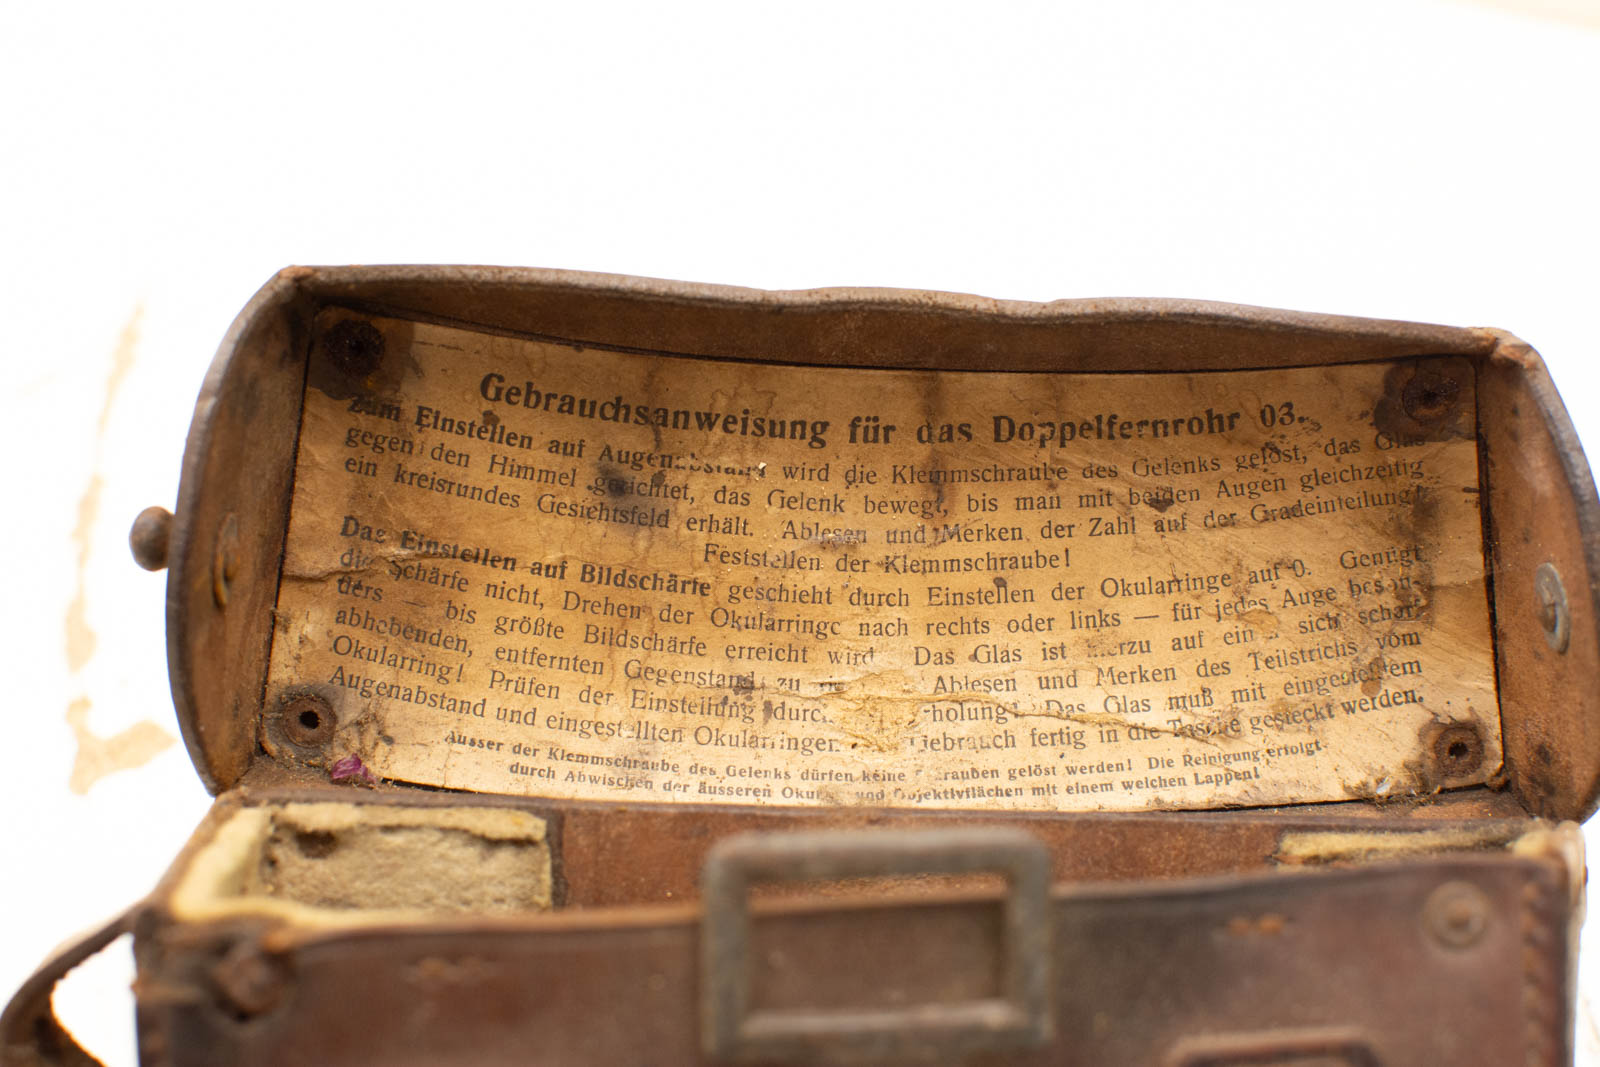 Gebrauchsanweisung für das Doppelfernrohr 03.
Zum Einstellen auf Augenabstand wird die Klemmschraube des Gelenks gelöst, das Glas
gegen den Himmel gerichtet, das Gelenk bewegt, bis man mit beiden Augen gleichzeitig
ein kreisrundes Gesichtsfeld erhält. Ablesen und Merken der Zahl auf der Gradeinteilung!
Feststellen der Klemmschraube!
Das Einstellen auf Bildschärfe geschieht durch Einstellen der Okularringe auf 0. Genügt
die Schärfe nicht, Drehen der Okularringe nach rechts oder links — für jedes Auge beson-
ders — bis größte Bildschärfe erreicht wird. Das Glas ist hierzu auf ein sich scharf
abhebenden, entfernten Gegenstand zu Ablesen und Merken des Teilstrichs vom
Okularring! Prüfen der Einstellung durch rholung! Das Glas muß mit eingestelltem
Augenabstand und eingestellten Okularringen Gebrauch fertig in die Tasche gesteckt werden.
Ausser der Klemmschraube des Gelenks dürfen keine Schrauben gelöst werden! Die Reinigung erfolgt
durch Abwischen der äusseren Okular- und Objektivflächen mit einem weichen Lappen!